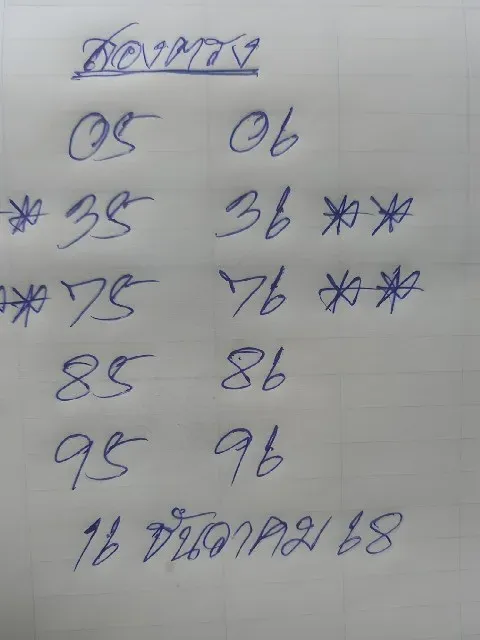 สองตรง
05 06
** 35 36 **
** 75 76 **
85 86
95 96
16 ธันวาคม 68